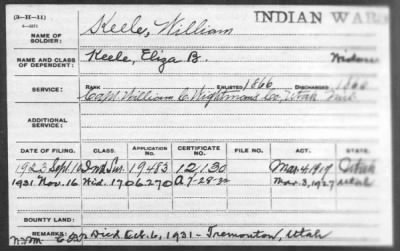 (3-11-11)
Keele, William
INDIAN WARS
NAME OF SOLDIER:
NAME AND CLASS OF DEPENDENT:
Keele, Eliza B.
Widow
SERVICE:
RANK ENLISTED 1866 DISCHARGED 1866
Capt William C. Wightmans Co, Utah Mil
ADDITIONAL SERVICE:
DATE OF FILING. CLASS. APPLICATION NO. CERTIFICATE NO. FILE NO. ACT. STATE.
1923 Sept. Ind Sur. 19483 12,130 Mar. 4, 1917 Utah
1931 Nov. 16 Wid. 1706270 Mar. 3, 1927 Utah
BOUNTY LAND:
REMARKS: Died Oct. 6, 1931 - Tremonton, Utah